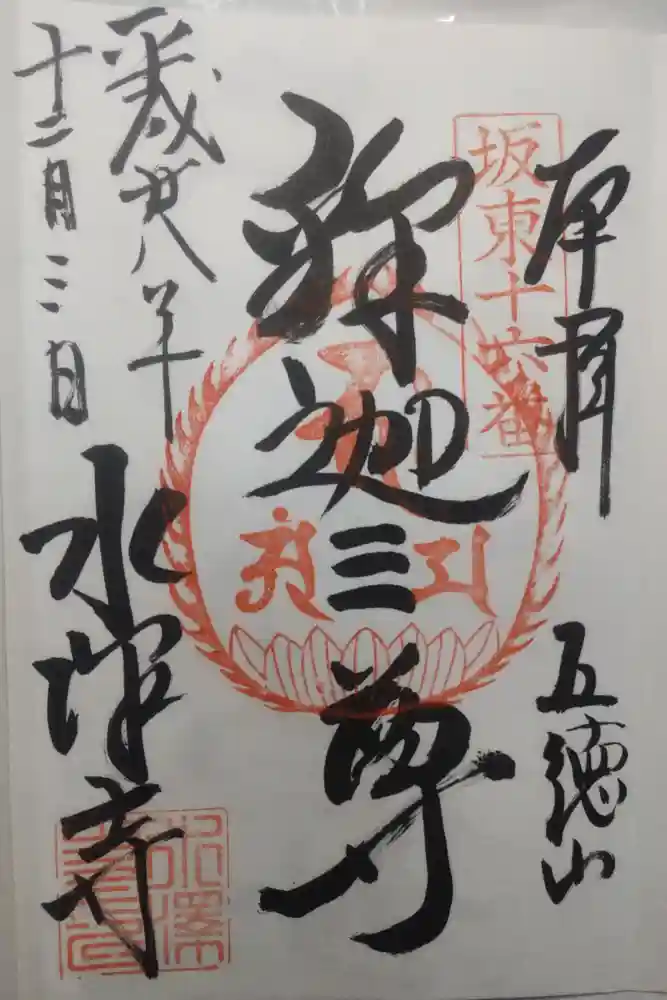 坂東十六番
奉拝
五徳山
釈迦三尊
平成廿八年
十二月三日
水澤寺